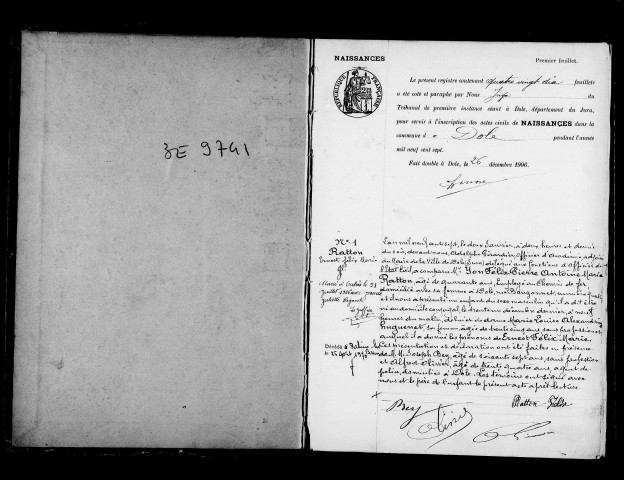 3E 9741
NAISSANCES
Premier feuillet.
RÉPUBLIQUE FRANÇAISE
Le présent registre contenant quatre vingt dix feuillets
a été coté et paraphé par Nous Juge du
Tribunal de première instance séant à Dole, département du Jura,
pour servir à l'inscription des actes civils de NAISSANCES dans la
commune d e Dole pendant l'année
mil neuf cent sept.
Fait double à Dole, le 26 décembre 1906.
N° 1
Ratton
Ernest Félix Marie
L'an mil neuf cent sept, le deux Janvier, à deux heures et demie
du soir, devant nous, Adolphe Girardin, Officier d'Académie, adjoint
du Maire de la Ville de Dole (Jura) délégué aux fonctions d'Officier de
l'État Civil, a comparu Mr Jon Félix Pierre Antoine Marie
Ratton, âgé de quarante ans, Employé au Chemin de fer,
domicilié avec sa femme à Dole, rue numéro
et du nous a présenté un enfant du sexe masculin qu'il a dit être
né au domicile conjugal le trente un décembre dernier, à neuf
heures du matin, de lui et de dame Marie Louise Alexandrine
Huguenet, son femme, âgée de trente cinq ans, sans profession et
auquel il a donné les prénoms de Ernest Félix Marie.
Les présentation et déclaration ont été faites en présence
de M.M. Joseph Bey, âgé de soixante sept ans, sans profession
et Alfred Olivier, âgé de trente quatre ans, agent de
police, domiciliés à Dole. Les témoins ont signé avec
nous et le père de l'enfant le présent acte après lecture.
Marié à le 31
Juillet
Décédé à
le 25 Août
Bey
Ratton Félix
Olivier